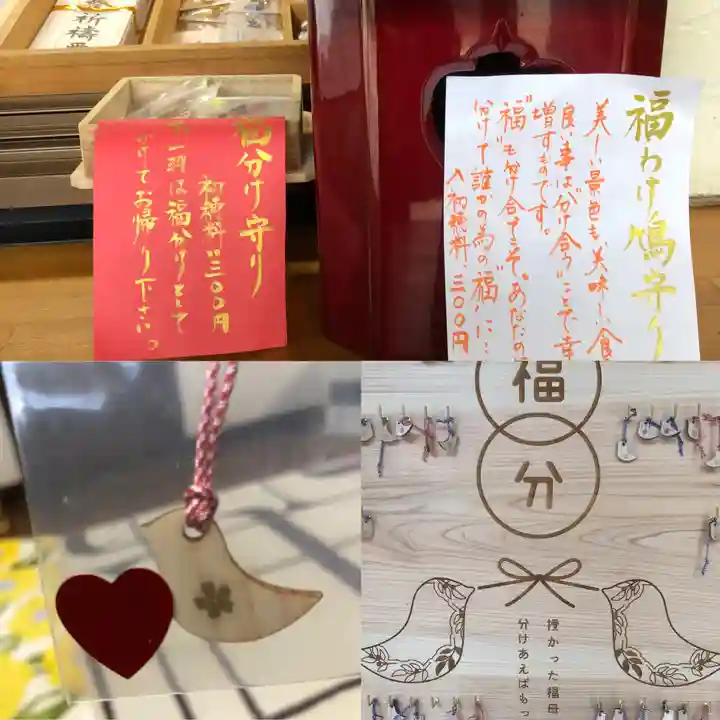 祈祷
福分け守り
初穂料 三〇〇円
は福分けとして
かけてお帰り下さい。
福わけ鳩守り
美しい景色も、美味しい食
良い事は“分け合う”ことで幸
増すものです。
“福”も分け合てこそ。あなたの
分けて誰かの為の“福”に…
初穂料、三〇〇円
福
分
授かった福母
分けあえばもっ